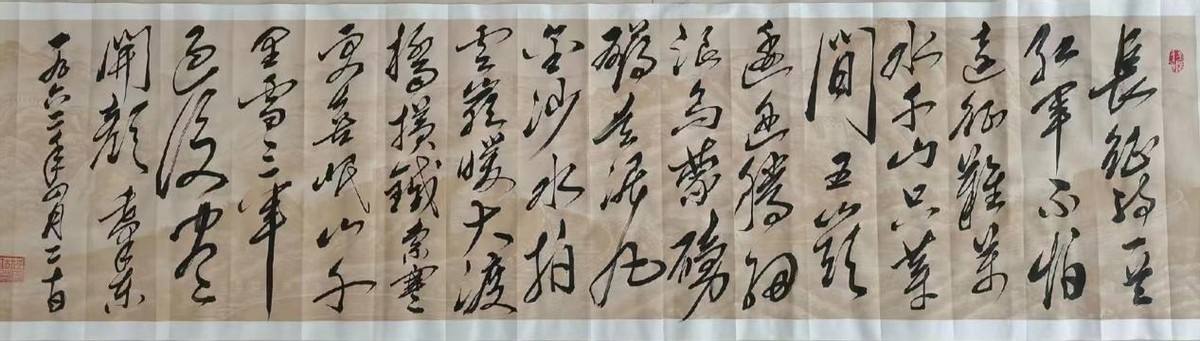 長征詩一首
紅軍不怕
遠征難萬
水千山只等
閒五嶺
逶迤騰細
浪烏蒙磅
礴走泥丸
金沙水拍
雲崖暖大渡
橋橫鐵索寒
更喜岷山千
里雪三軍
過後盡
開顏 毛澤東
一九六二年四月二十日